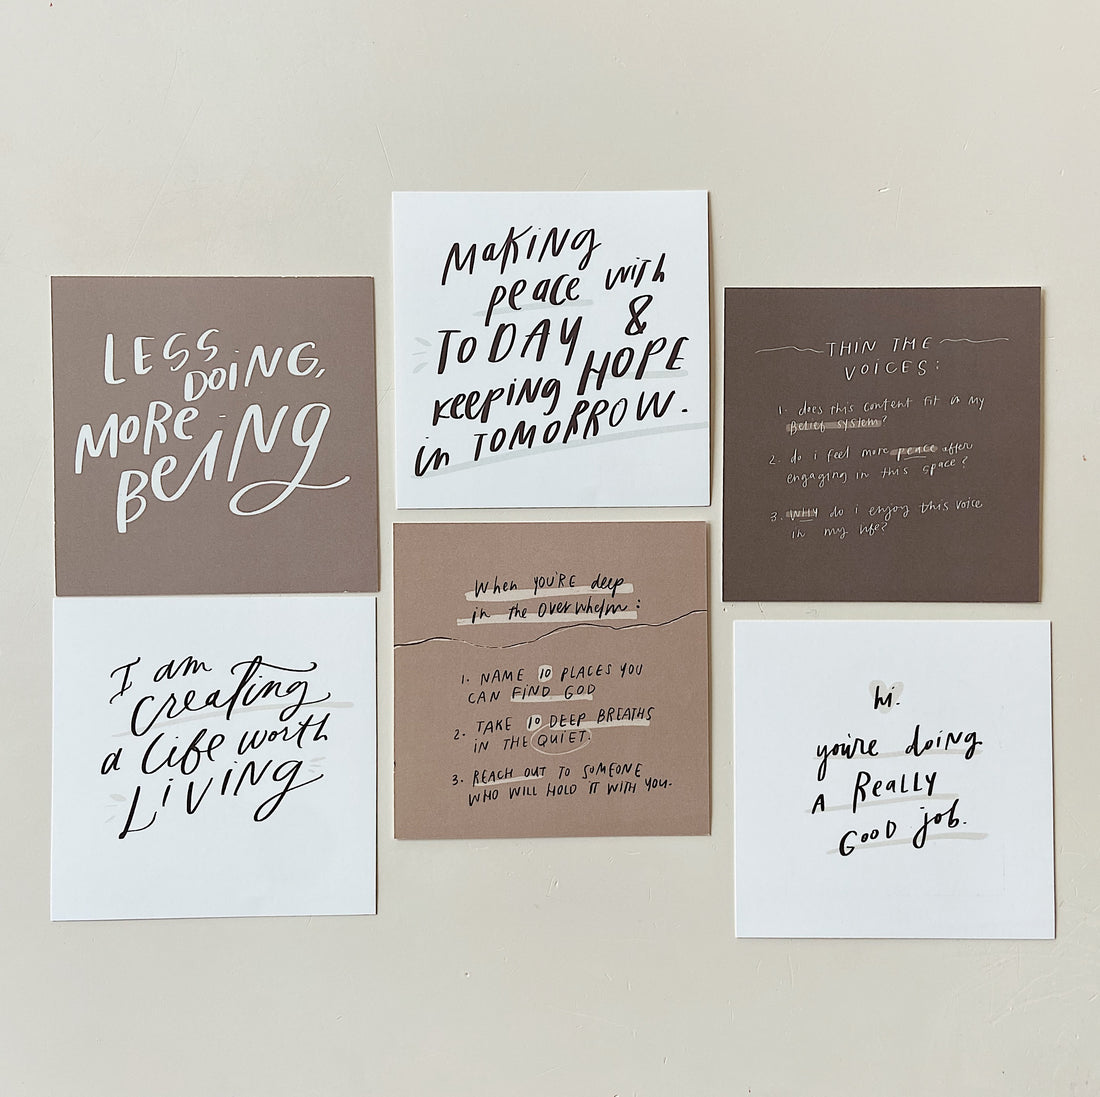 LESS
DOiNG,
MORE
BEiNG
I am
creating
a life worth
LiViNG
MakiNG
peace with
TODAY &
keepiNg HOPE
in TOMORROW.
When YOU'RE deep
in the Overwhelm:
1. NAME 10 PLACES YOU
CAN FIND GOD
2. TAKE 10 DEEP BREATHS
IN THE QUIET.
3. REACH OUT TO SOMEONE
WHO WILL HOLD IT WITH YOU.
THIN THE
VOICES:
1. does this content fit in my
belief system?
2. do i feel more peace after
engaging in this space?
3. WHY do i enjoy this voice
in my life?
hi.
you're doing
A Really
GOOD job.